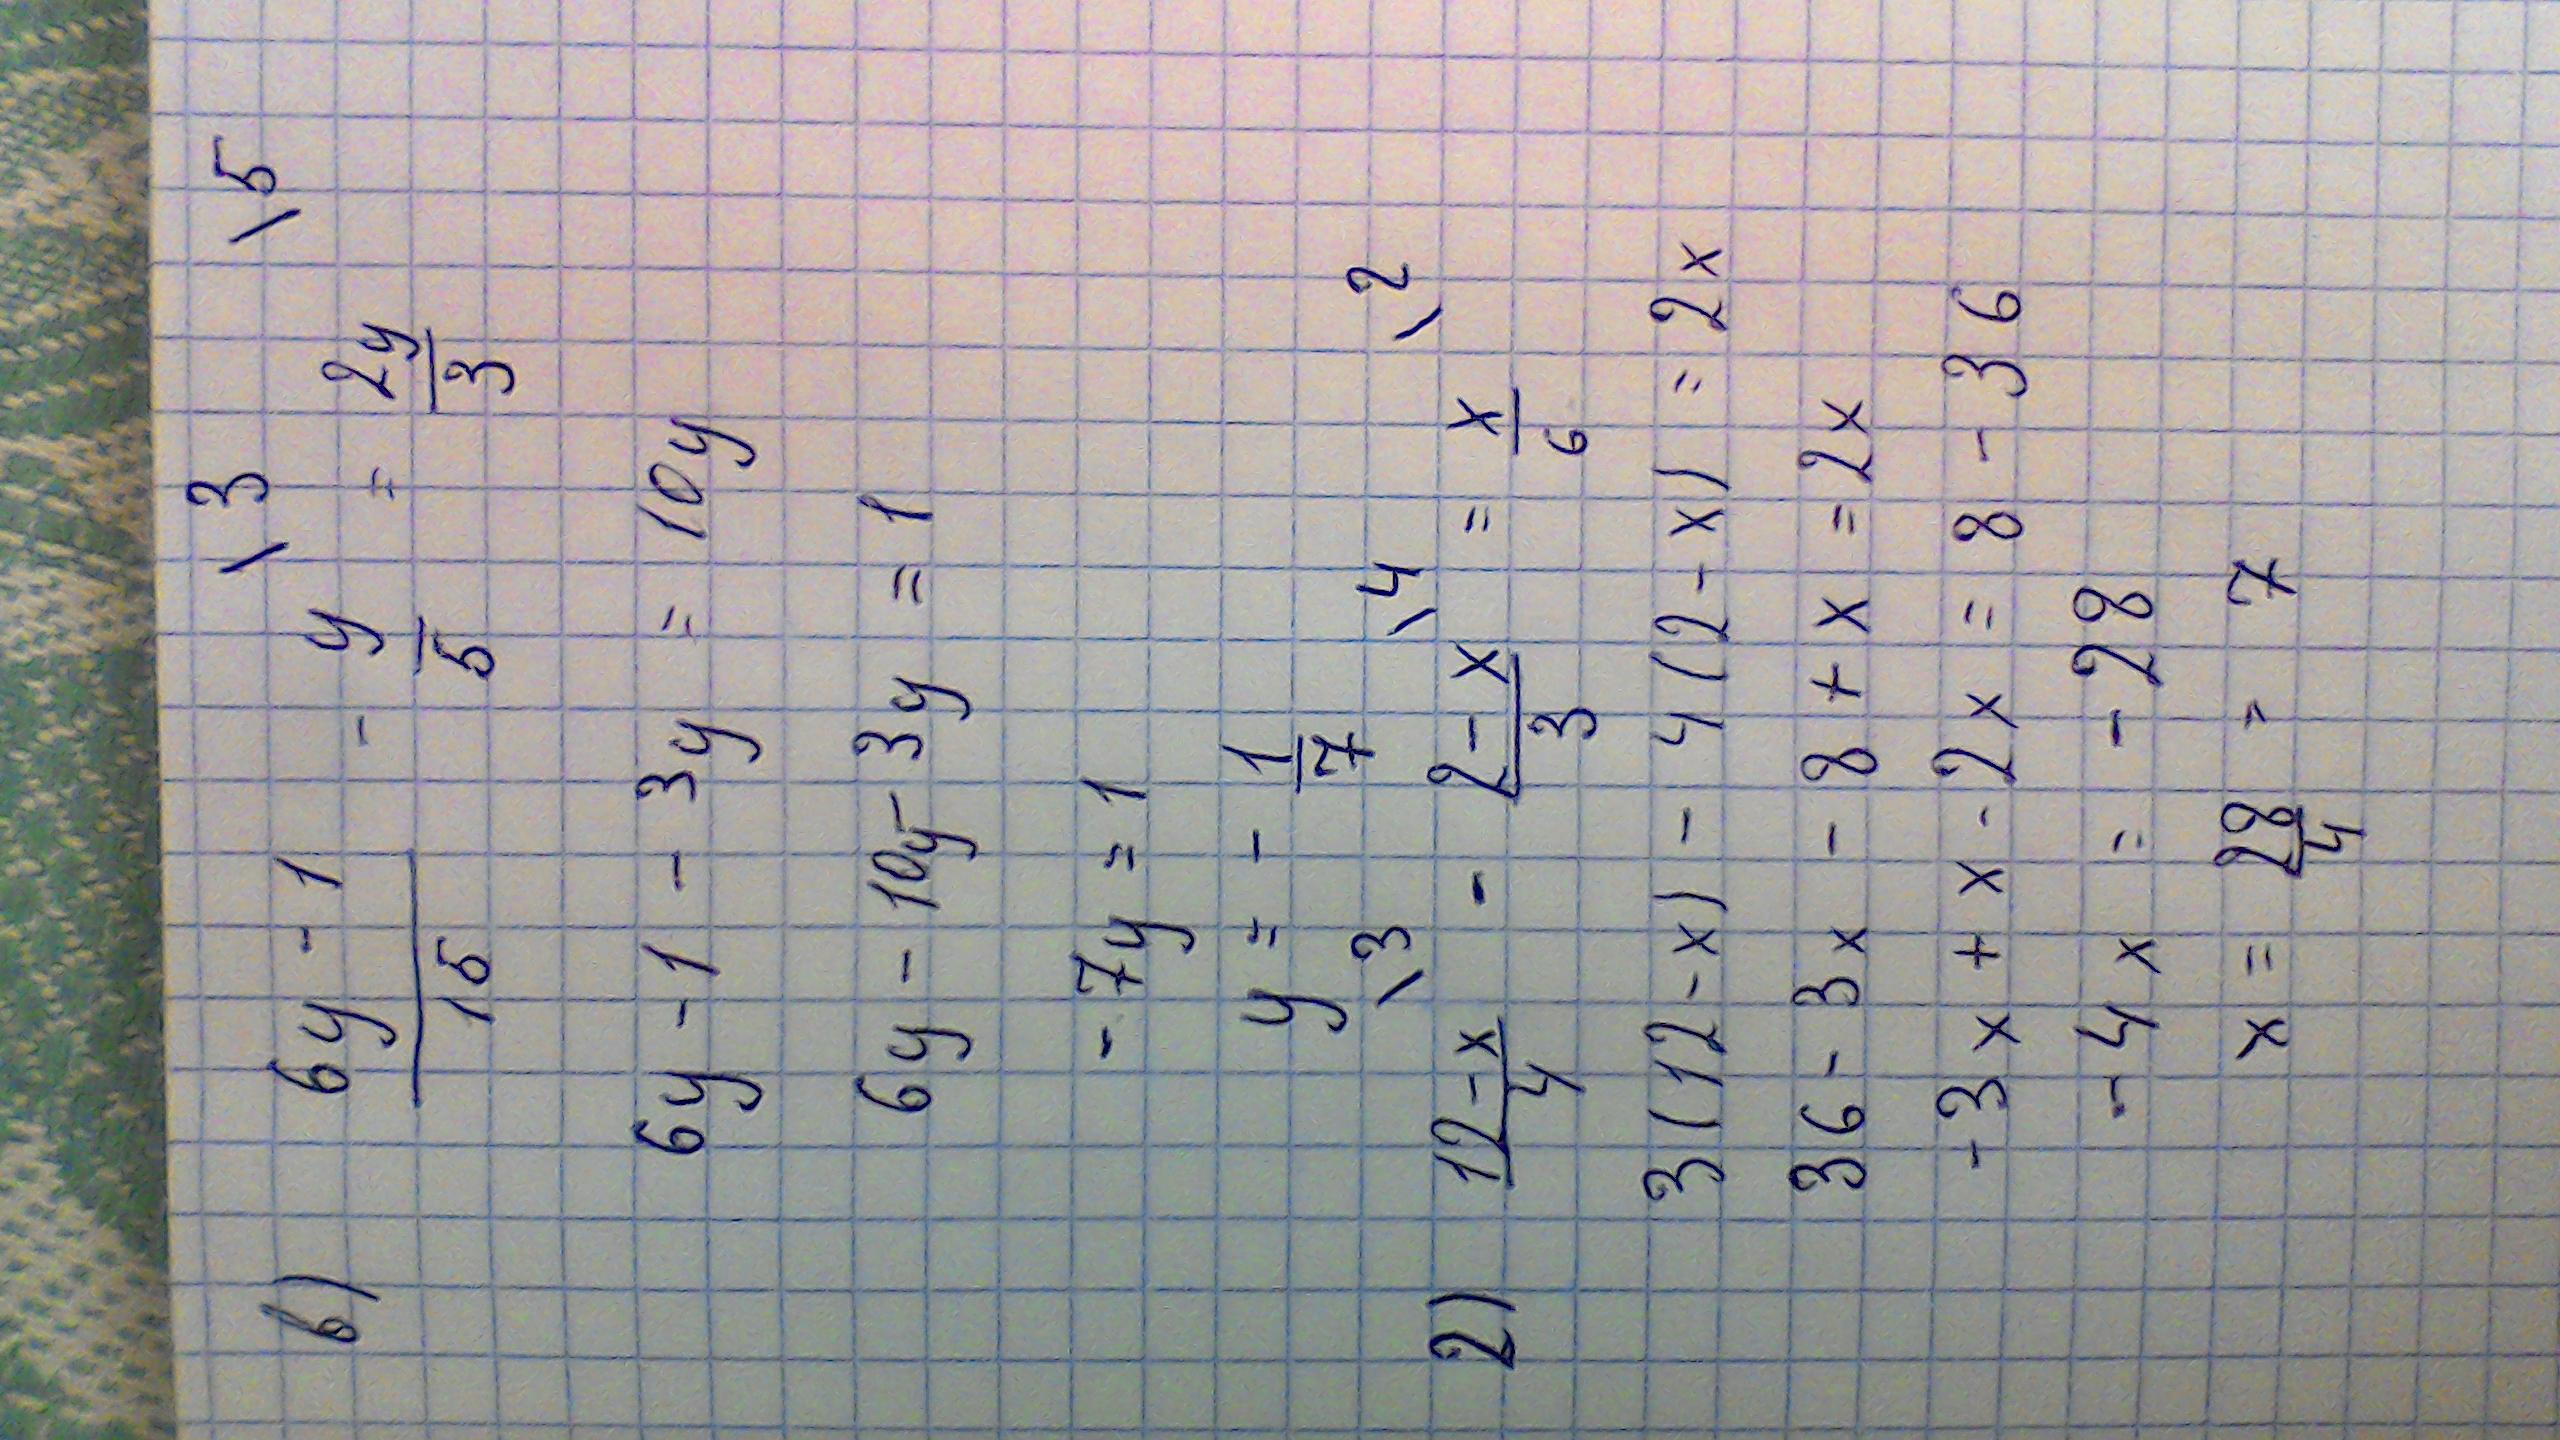 в) \3 \5
6y - 1 / 15 - y / 5 = 2y / 3
6y - 1 - 3y = 10y
6y - 10y - 3y = 1
- 7y = 1
y = - 1/7
\3 \4 \2
2) 12 - x / 4 - 2 - x / 3 = x / 6
3(12 - x) - 4(2 - x) = 2x
36 - 3x - 8 + x = 2x
- 3x + x - 2x = 8 - 36
- 4x = - 28
x = 28/4 = 7